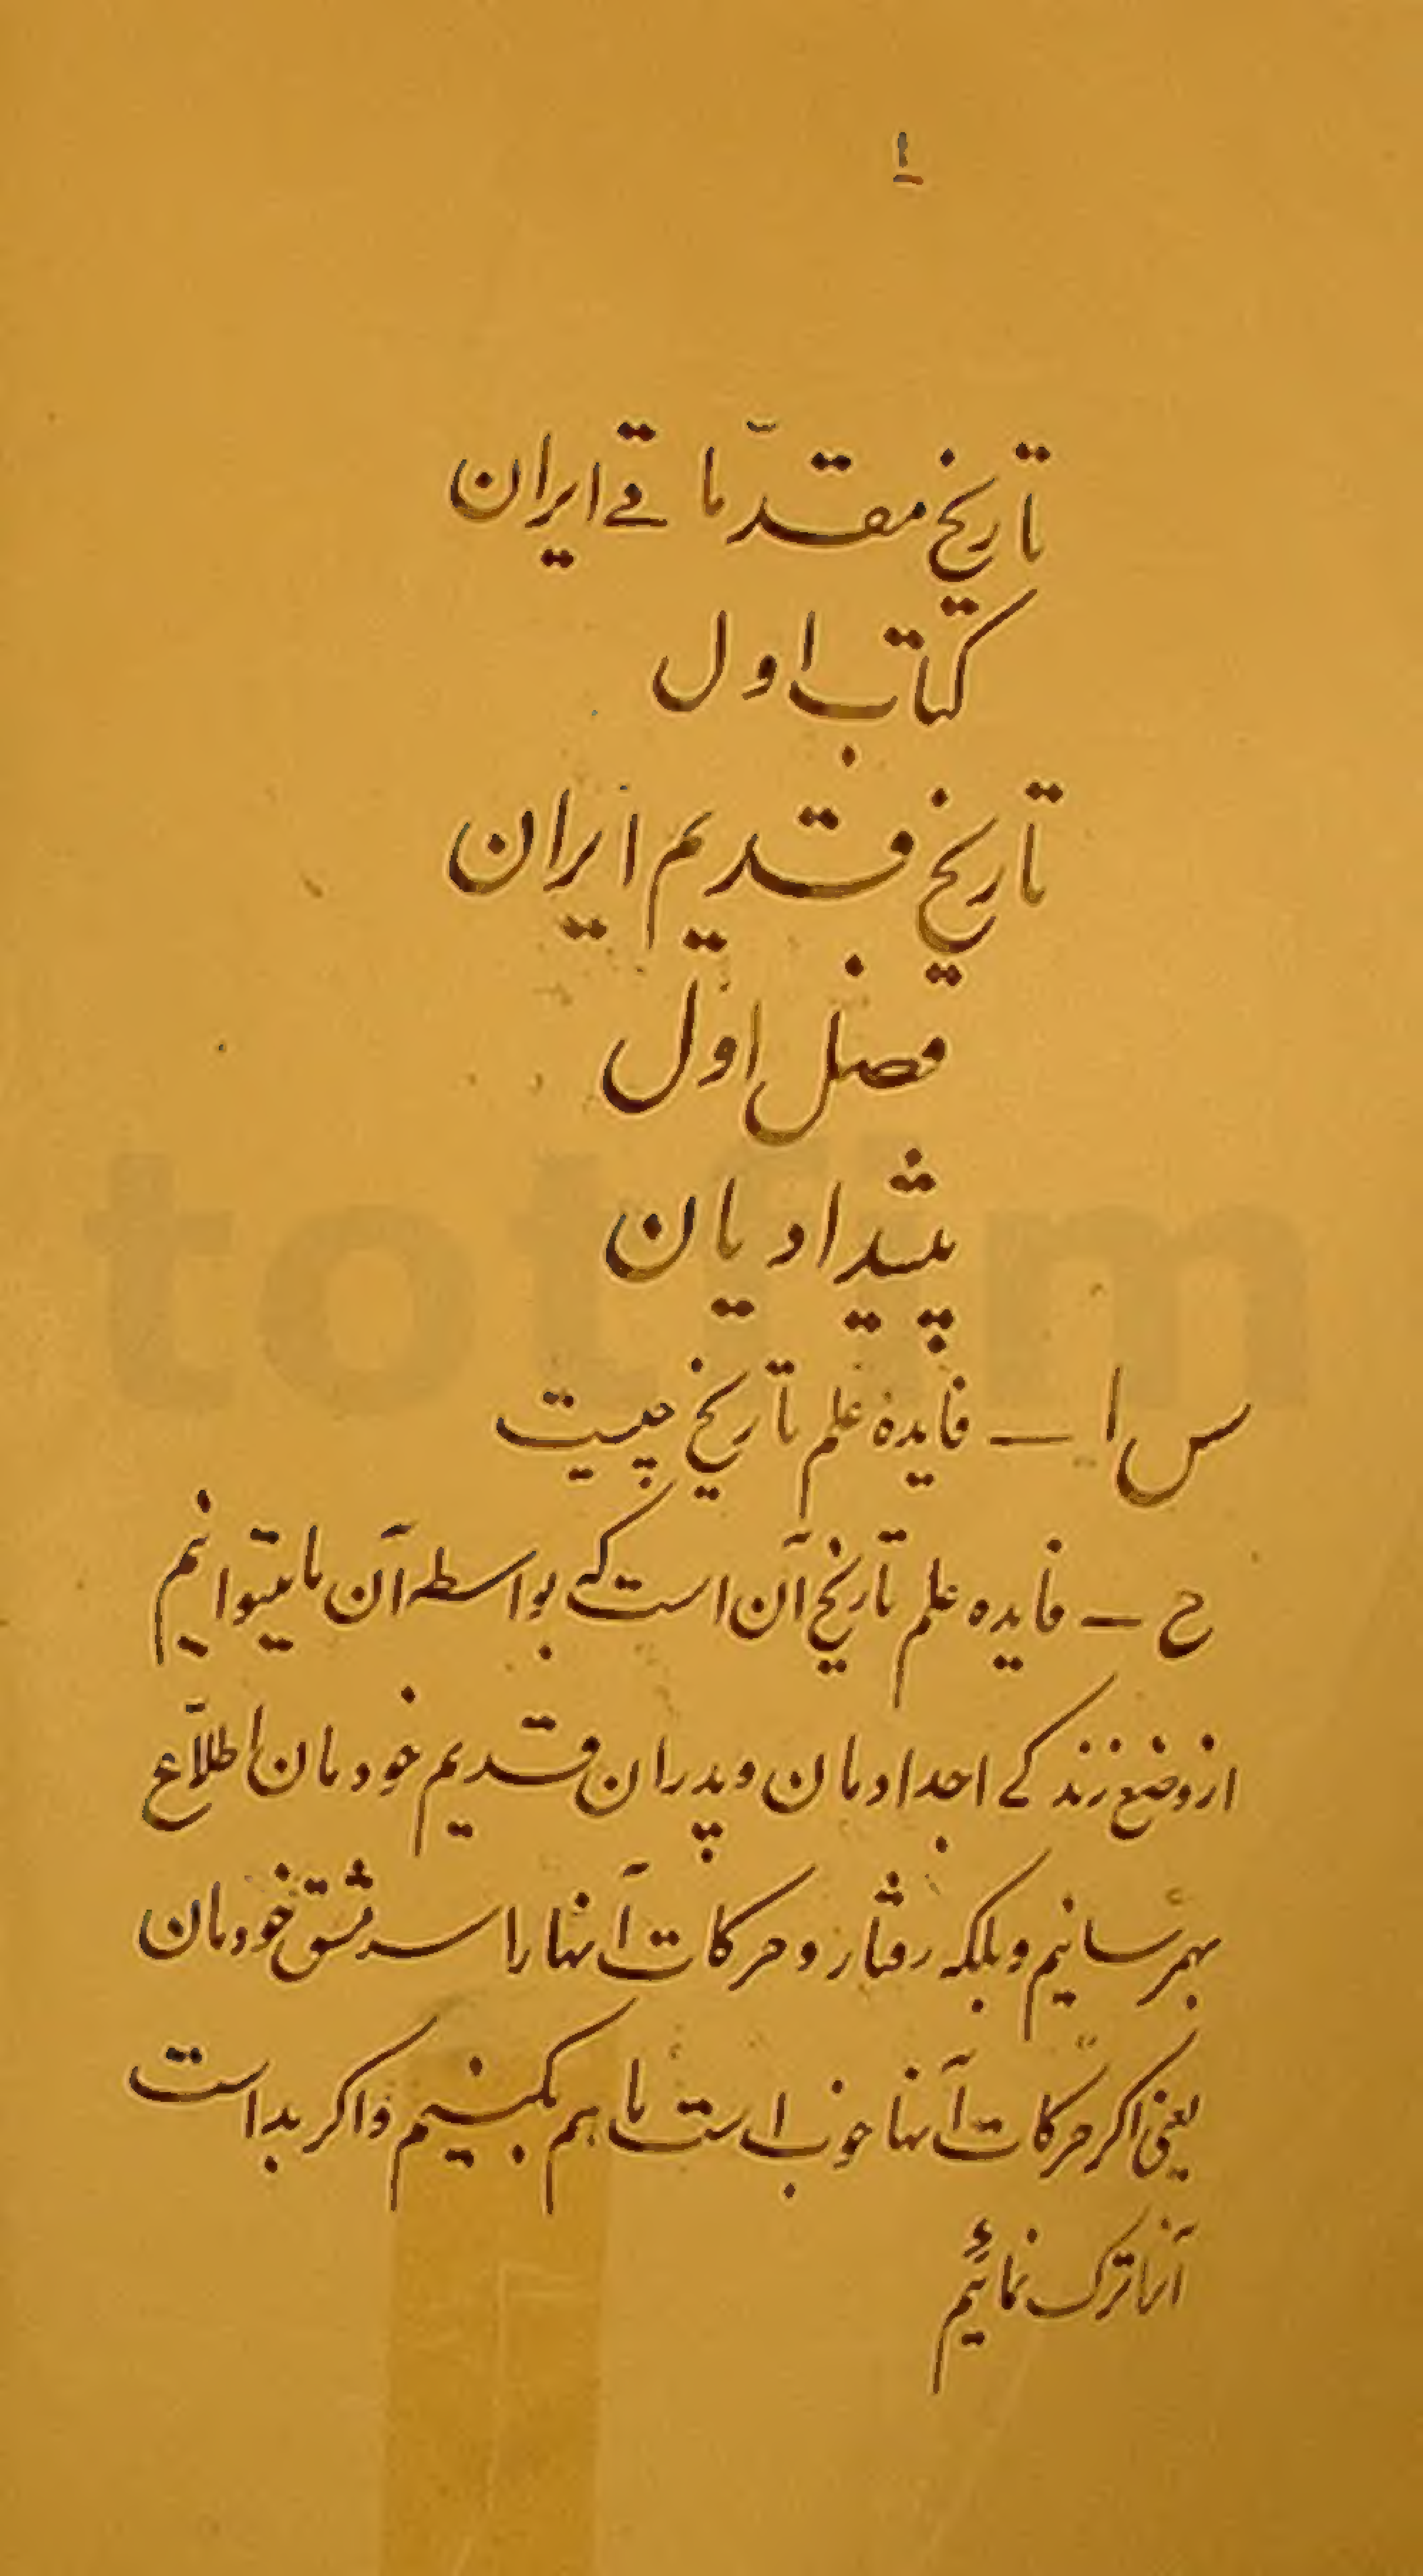 ۱
تاریخ مقدّماتے ایران
کتاب اول
تاریخ قدیم ایران
فصل اول
پیشدادیان
س ۱ — فایده علم تاریخ چیست
ج — فایده علم تاریخ آن است که بواسطه آن ما میتوانیم
از وضع زندگے اجدادمان و پدران قدیم خودمان اطلاع
بهمرسانیم و بلکه رفتار و حرکات آنها را سرمشق خودمان
یعنی اکر حرکات آنها خوب است ما هم بکنیم و اکر بد است
آنرا ترک نمائیم
totfim